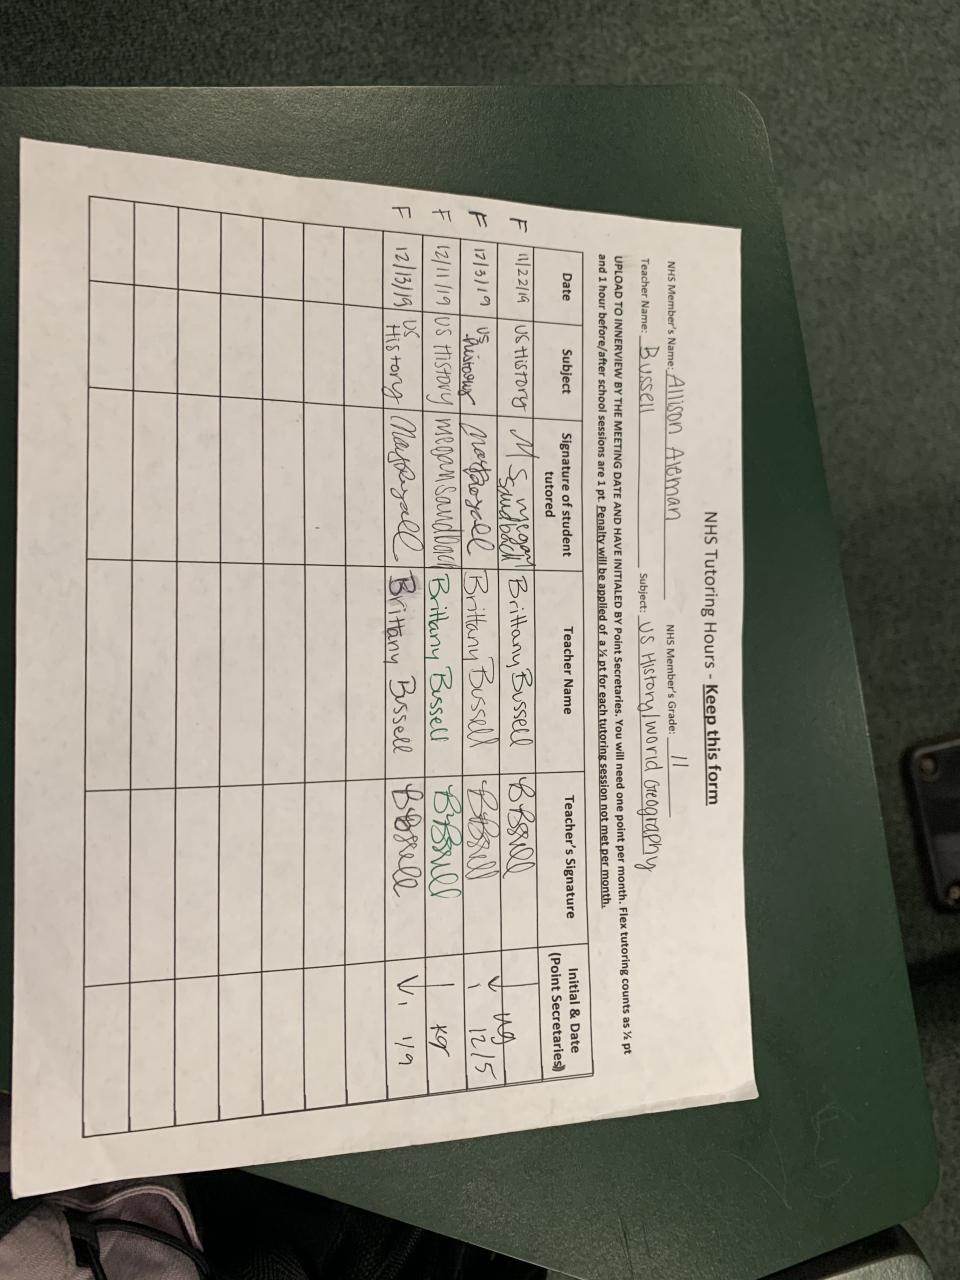 NHS Tutoring Hours - Keep this form
NHS Member's Name: Allison Aleman NHS Member's Grade: 11
Teacher Name: Bussell Subject: US History/World Geography
UPLOAD TO INNERVIEW BY THE MEETING DATE AND HAVE INITIALED BY Point Secretaries. You will need one point per month. Flex tutoring counts as ½ pt
and 1 hour before/after school sessions are 1 pt. Penalty will be applied of a ½ pt for each tutoring session not met per month.
Date Subject Signature of student tutored Teacher Name Teacher's Signature Initial & Date (Point Secretaries)
F 11/22/19 US History M S Megan Sandbach Brittany Bussell B Bussell
F 12/3/19 US history Brittany Bussell B Bussell 12/5
F 12/11/19 US History megan sandbach Brittany Bussell B Bussell kg
F 12/13/19 US History Brittany Bussell B Bussell 1/9